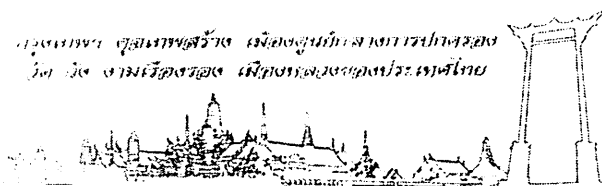 กรุงเทพฯ ดุจเทพสร้าง เมืองศูนย์กลางการปกครอง
วัด วัง งามเรืองรอง เมืองหลวงของประเทศไทย